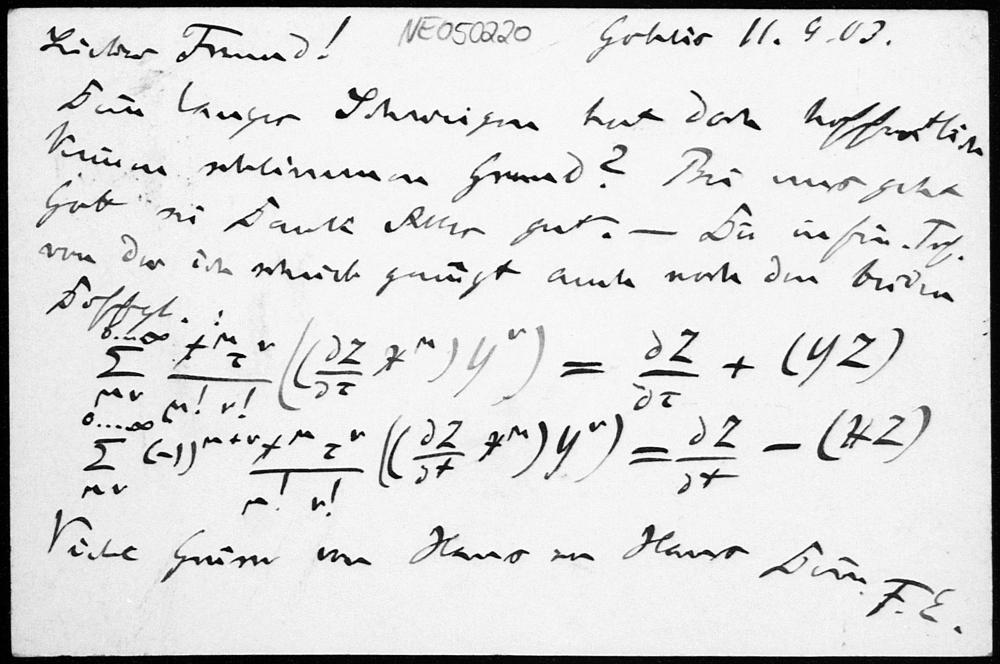 Lieber Freund! NE050220 Gohlis 11. 9. 03.
Dein langes Schweigen hat doch hoffentlich
keinen schlimmen Grund? Bei uns geht
Gott sei Dank Alles gut. — Die infin. Trf.
von der ich schrieb genügt auch noch den beiden
Dffgl.:
0...∞ ∑ μν x^μ τ^ν / μ! ν! ((∂Z/∂τ X^μ) Y^ν) = ∂Z/∂τ + (YZ)
0...∞ ∑ μν (-1)^{μ+ν} x^μ τ^ν / μ! ν! ((∂Z/∂t X^μ) Y^ν) = ∂Z/∂t − (XZ)
Viele Grüsse von Haus zu Haus Dein
F. E.